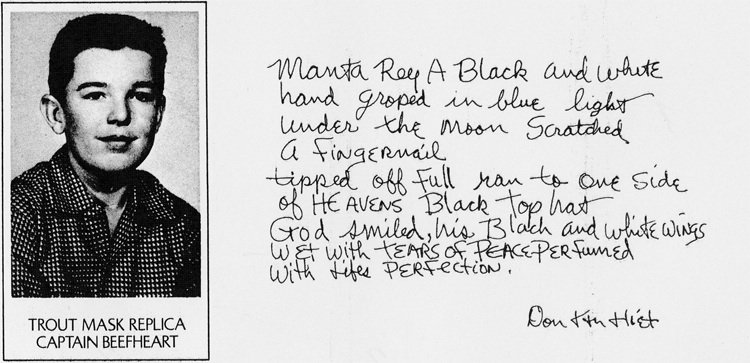 TROUT MASK REPLICA
CAPTAIN BEEFHEART
Manta Rey A Black and white
hand groped in blue light
under the Moon Scratched
A fingernail
tipped off full ran to one side
of HEAVENS Black top hat
God smiled, his Black and white wings
WET WITH TEARS OF PEACE PERFUMED
WITH lifes PERFECTION.
Don